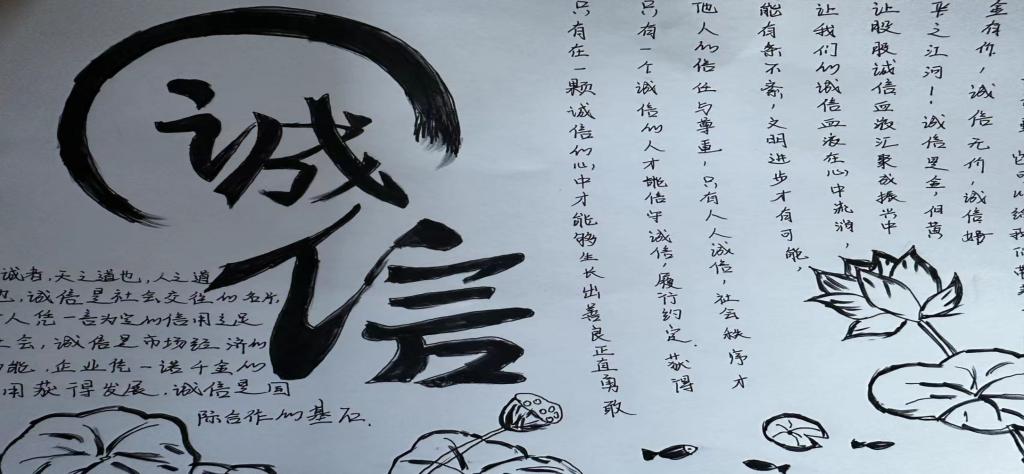 诚信
诚者，天之道也，人之道
也，诚信是社会交往的名片，
人凭一言为定的信用立足
会，诚信是市场经济的
能，企业凭一诺千金的
用获得发展．诚信是国
际合作的基石．
只有在一颗诚信的心中才能够生长出善良正直勇敢
只有一个诚信的人才能信守诚信，履行约定．获得
他人的信任与尊重，只有人人诚信，社会秩序才
能有条不紊，文明进步才有可能，
让我们的诚信血液在心中流淌，
让股股诚信血液汇聚成振兴中
华之江河！诚信是金，但黄
金有价，诚信无价，诚信好